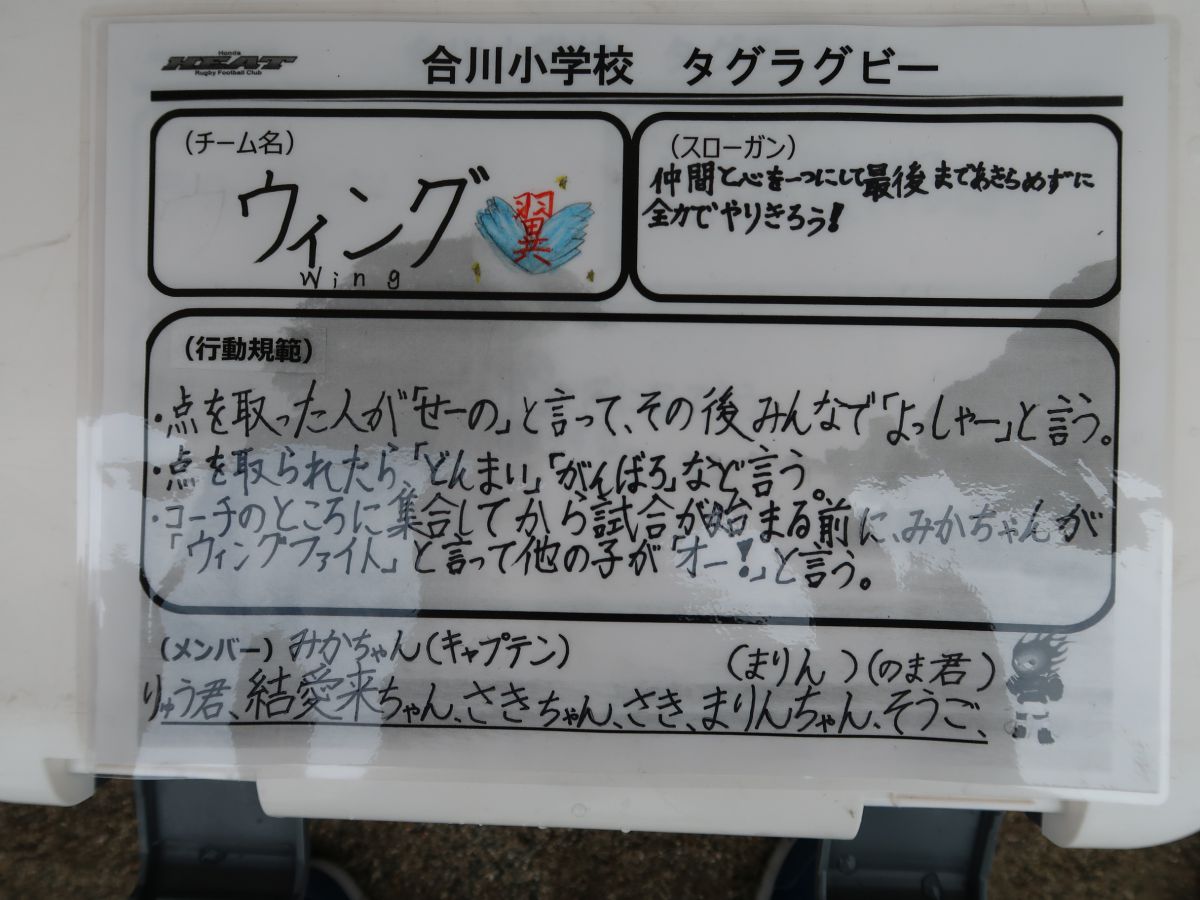 Honda
HEAT
Rugby Football Club
合川小学校　タグラグビー
（チーム名）
ウィング
翼
Wing
（スローガン）
仲間と心を一つにして最後まであきらめずに
全力でやりきろう！
（行動規範）
・点を取った人が「せーの」と言って、その後みんなで「よっしゃー」と言う。
・点を取られたら「どんまい」「がんばろ」など言う。
・コーチのところに集合してから試合が始まる前に、みかちゃんが
「ウィングファイト」と言って他の子が「オー！」と言う。
（メンバー）みかちゃん（キャプテン）
（まりん）（のま君）
りゅう君、結愛来ちゃん、さきちゃん、さき、まりんちゃん、そうご、